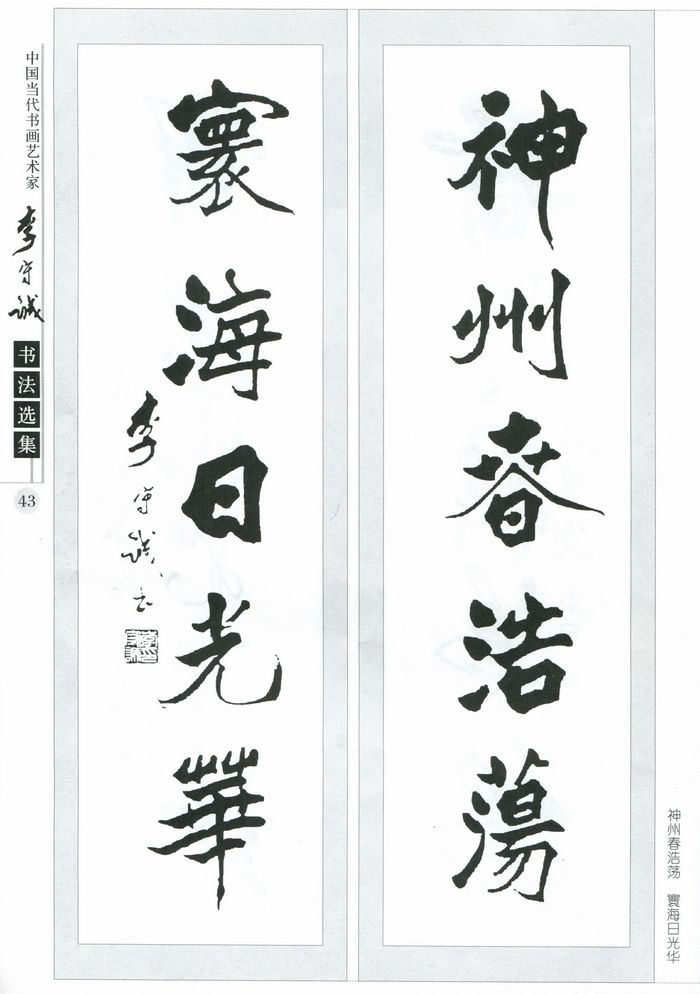 神州春浩蕩
寰海日光華
李守誠書
中国当代书画艺术家
李守诚
书法选集
43
神州春浩荡 寰海日光华